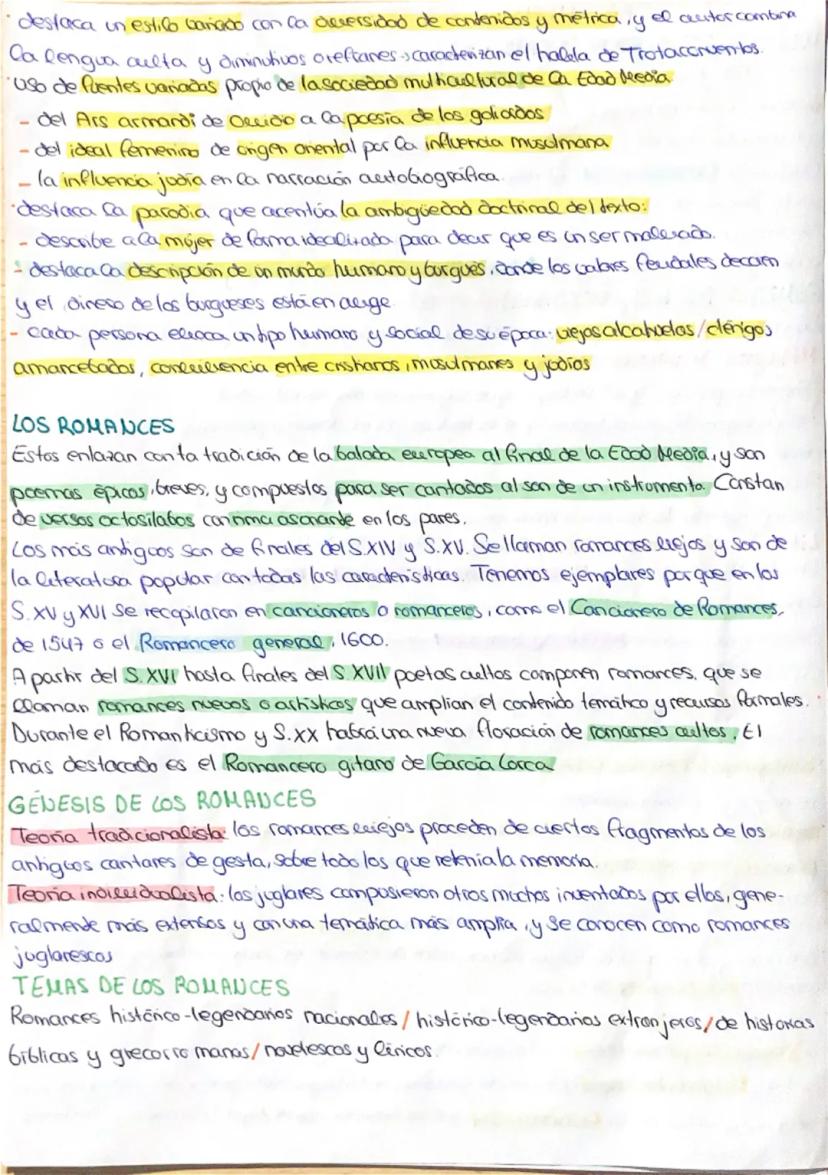 destaca un estilo variado con la diversidad de contenidos y métrica, y el autor combina
la lengua culta y diminutivos o refranes → caracterizan el habla de Trotaconventos.
·Uso de fuentes variadas propio de la sociedad multicultural de la Edad Media
- del Ars armandi de Ovidio a la poesía de los goliardos
- del ideal femenino de origen oriental por la influencia musulmana
- la influencia judía en la narración autobiográfica.
·destaca la parodia que acentúa la ambigüedad doctrinal del texto:
- describe a la mujer de forma idealizada para decir que es un ser malvado.
- destaca la descripción de un mundo humano y burgués, donde los valores feudales decaen
y el dinero de los burgueses está en auge.
- cada persona evoca un tipo humano y social de su época: viejas alcahuetas / clérigos
amancebados, convivencia entre cristianos, musulmanes y judíos
LOS ROMANCES
Estos enlazan con la tradición de la balada europea al final de la Edad Media, y son
poemas épicos, breves, y compuestos para ser cantados al son de un instrumento. Constan
de versos octosílabos con rima asonante en los pares.
Los más antiguos son de finales del S.XIV y S.XV. Se llaman romances viejos y son de
la literatura popular con todas las características. Tenemos ejemplares porque en los
S.XV y XVI se recopilaron en cancioneros o romanceros, como el Cancionero de Romances,
de 1547 o el Romancero general, 1600.
A partir del S.XVI hasta finales del S XVII poetas cultos componen romances, que se
llaman romances nuevos o artísticos que amplian el contenido temático y recursos formales.
Durante el Romanticismo y S.XX habrá una nueva floración de romances cultos. El
más destacado es el Romancero gitano de García Lorca
GÉNESIS DE LOS ROMANCES
Teoría tradicionalista: los romances viejos proceden de ciertos fragmentos de los
antiguos cantares de gesta, sobre todo los que retenía la memoria.
Teoría individualista: los juglares compusieron otros muchos inventados por ellos, gene-
ralmente más extensos y con una temática más amplia, y se conocen como romances
juglarescos
TEMAS DE LOS ROMANCES
Romances histórico-legendarios nacionales / histórico-legendarios extranjeros / de historias
bíblicas y grecorromanas / novelescos y líricos.